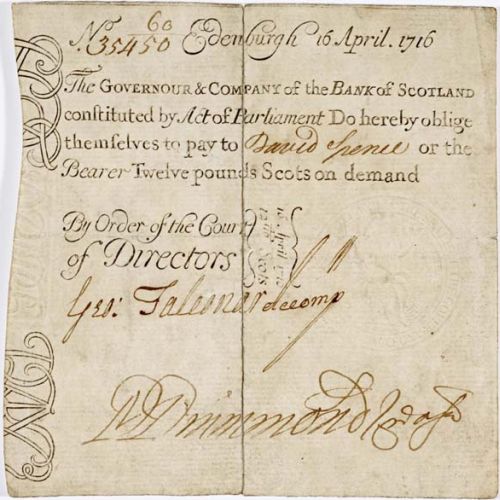 No. 60/35450 Edenburgh 16 April. 1716
The GOVERNOUR & COMPANY of the BANK of SCOTLAND
constituted by Act of Parliament Do hereby oblige
themselves to pay to David Spence or the
Bearer Twelve pounds Scots on demand
By Order of the Court
of Directors
Geo:
Drummond